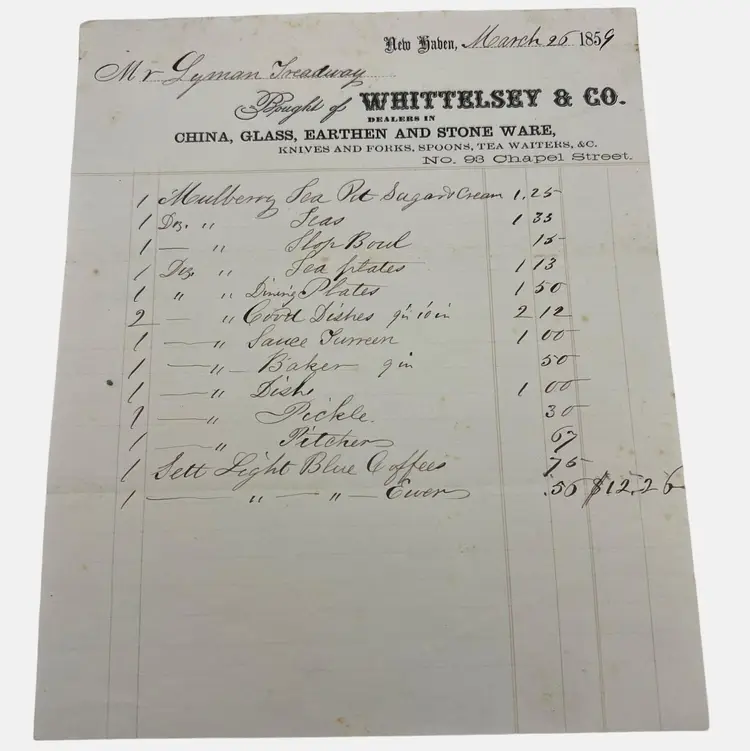 New Haven, March 26 1859
Mr Lyman Treadway
Bought of WHITTELSEY & CO.
DEALERS IN
CHINA, GLASS, EARTHEN AND STONE WARE,
KNIVES AND FORKS, SPOONS, TEA WAITERS, &C.
No. 93 Chapel Street.
1 Mulberry Tea Pot Sugar & Cream 1.25
1 Doz. " Teas 1 33
1 — " Slop Bowl 15
1 Doz. " Tea plates 1 13
1 " " Dining Plates 1 50
2 — " Dishes 9in 10in 2 12
1 — " Sauce Turreen 1 00
1 — " Baker 9 in 50
1 — " Dish 1 00
1 — " Pickle. 30
1 — " Pitcher 67
1 Sett Light Blue Coffees 75
1 — " — " — Ewer .56 $12.26